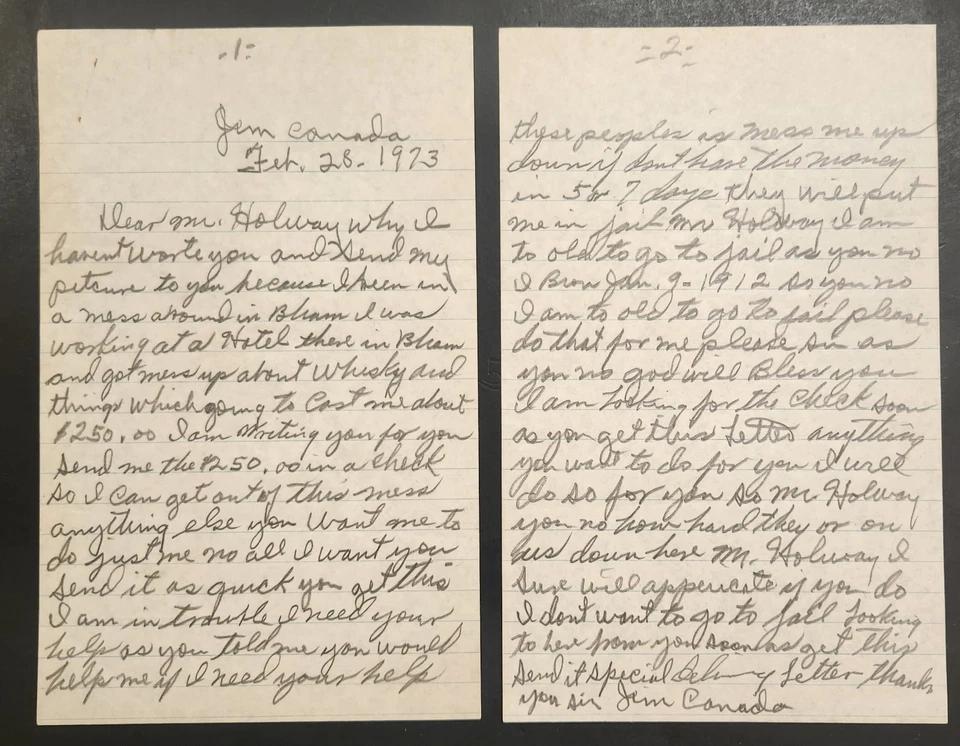 -1-
Jim Canada
Feb. 28-1973
Dear Mr. Holway why I
havent worte you and send my
petcure to you because I been in
a mess around in Bham I was
working at a Hotel there in Bham
and got mess up about whisky and
things which going to cost me about
$250.00 I am writing you for you
send me the $250.00 in a check
so I can get out of this mess
anything else you want me to
do just me no all I want you
send it as quick you get this
I am in trouble I need your
help as you told me you would
help me if I need your help
-2-
these peoples is mess me up
down if dont have the money
in 5 or 7 days they will put
me in jail Mr Holway I am
to old to go to jail as you no
I Bron Jan. 9-1912 so you no
I am to old to go to jail please
do that for me please sir as
you no god will Bless you
I am looking for the check soon
as you get this Letter anything
you want to do for you I will
do so for you so Mr. Holway
you no how hard they or on
us down here Mr. Holway I
sure will appericate if you do
I dont want to go to jail Looking
to here from you soon as get this
send it special Letter thanks
you sir Jim Canada